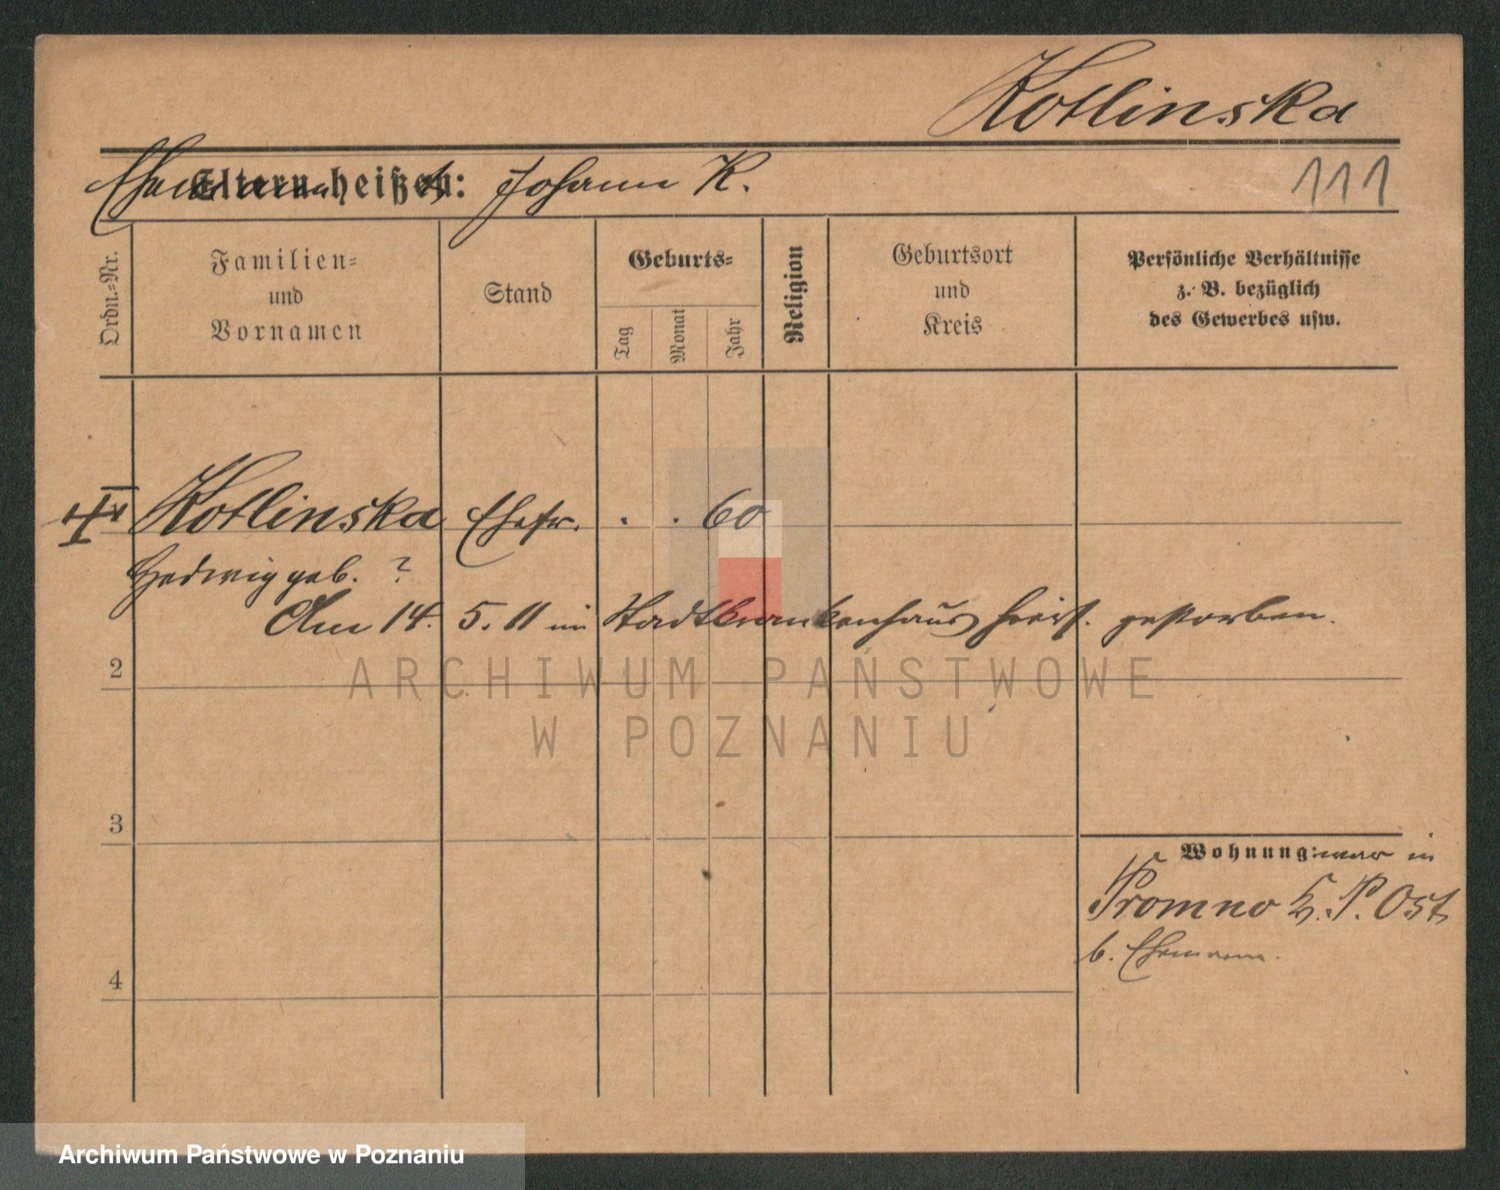 Kotlinska
Ehemann Eltern heißen: Johann K. 111
Ordn.-Nr.
Familien-
und
Vornamen
Stand
Geburts-
Tag
Monat
Jahr
Religion
Geburtsort
und
Kreis
Persönliche Verhältnisse
z. B. bezüglich
des Gewerbes usw.
Kotlinska Ehefr. . . 60
Hedwig geb. ?
Am 14. 5. 11 im Stadtkrankenhaus hiers. gestorben.
2
ARCHIWUM PAŃSTWOWE
W POZNANIU
3
Wohnung: war in
Promno K. P. Ost
b. Ehemann.
4
Archiwum Państwowe w Poznaniu